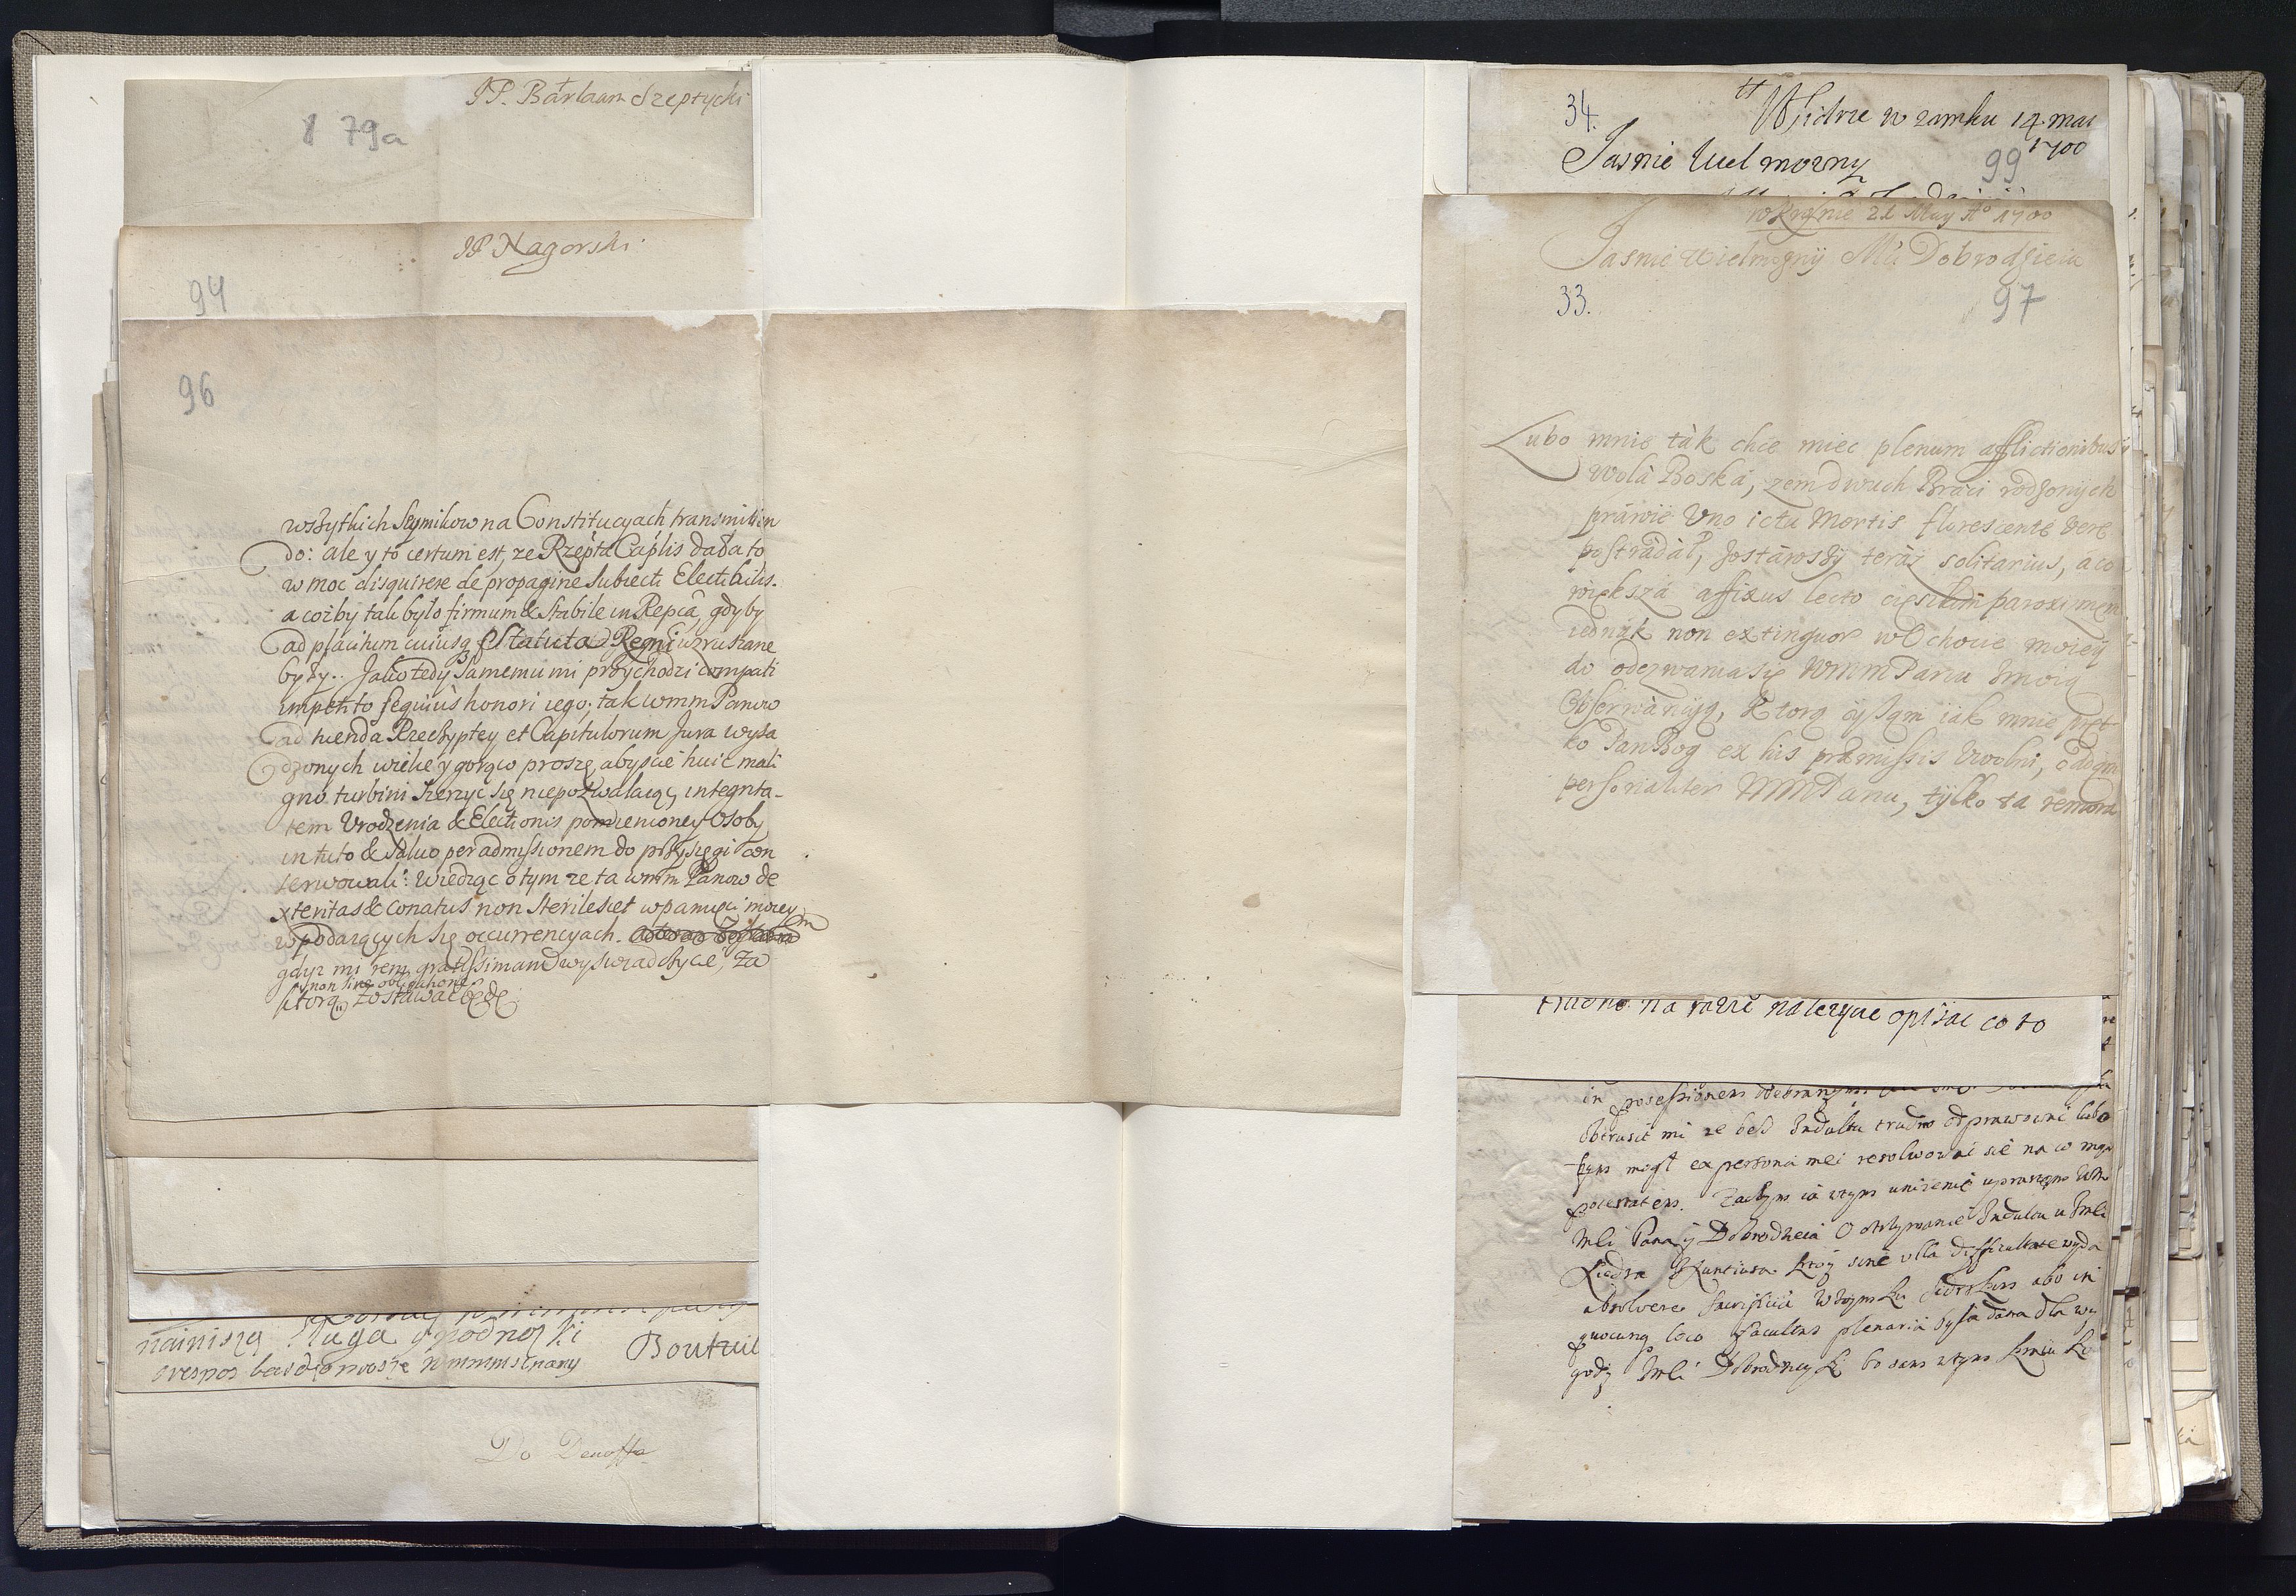 JP. Barlaam Szeptycki
79a
JP Nagorski
94
96
wszytkich Seymikow na Constitucyach transmitten
do: ale y to certum est, ze Rzepta Caplis dała to
w moc disquirere de propagine Subiecti Electibilis.
a cożby tak było firmum & stabile in Repca, gdyby
ad placitum cuiusq Statuta Regni wzruszane
były. Jako tedy samemu mi przychodzi compati
impetito sequius honori iego; tak wmm Panow
ad tuenda Rzeczyptey et Capitulorum Jura wysa
dzonych wielce y gorąco proszę abyscie huic mali
gno turbini szerzyc się niepozwalaiąc, integrita-
tem Vrodzenia & Electionis pomienioney Osoby
in tuto & salvo per admissionem do przysięgi con
serwowali: Wiedząc o tym ze ta wmm Panow de
xteritas & conatus non sterilescet w pamięci moiey
w podaiących się occurrencyach.
gdyz mi rem gratissimam wyswiadczycie, za
non sine obligatione
ktorą zostawac będę
nainiszą sługą y podnozki
Boutuil
Do Denoffa
34.
W Sidrze w zamku 14 mai
1700
Jasnie Wiel mozny
99
21 May Aº 1700
Jasnie Wielmozny Mci Dobrodzieiu
33.
97
Lubo mnie ták chce miec plenum afflictionibus
Wola Boska, zem dwuch Braci rodzonych
práwie Uno ictu Mortis florescente vere
postrádał, zostáwszy teraz solitarius, a co
większa affixus lecto cięszkim paroximem
iednák non extinguor w Ochocie moiey
do odezwania się WMM Panu z moią
Obserwáncyą, Ktorą
ko Pan Bog ex his præmissis Uwolni, oddam
personaliter WMM Panu, tylko ta remora
trudno na razie nalezycie opisac co to
in possessionem
mi ze bez Indultu trudno odprawowac lubo
bym mogł ex persona mei resolwowac się na co
potestatem. Zaczym ia wtym unizenie upraszam WM
Mci Pana y Dobrodzieia O otrzymanie Indultu u Jmci
Xiędza Nuntiusa ktory sine ulla difficultate wyda
absolvere
quocunq loco facultas plenaria była dana dla wy
gody Jmci Dobrodzieyki bo sam wtym